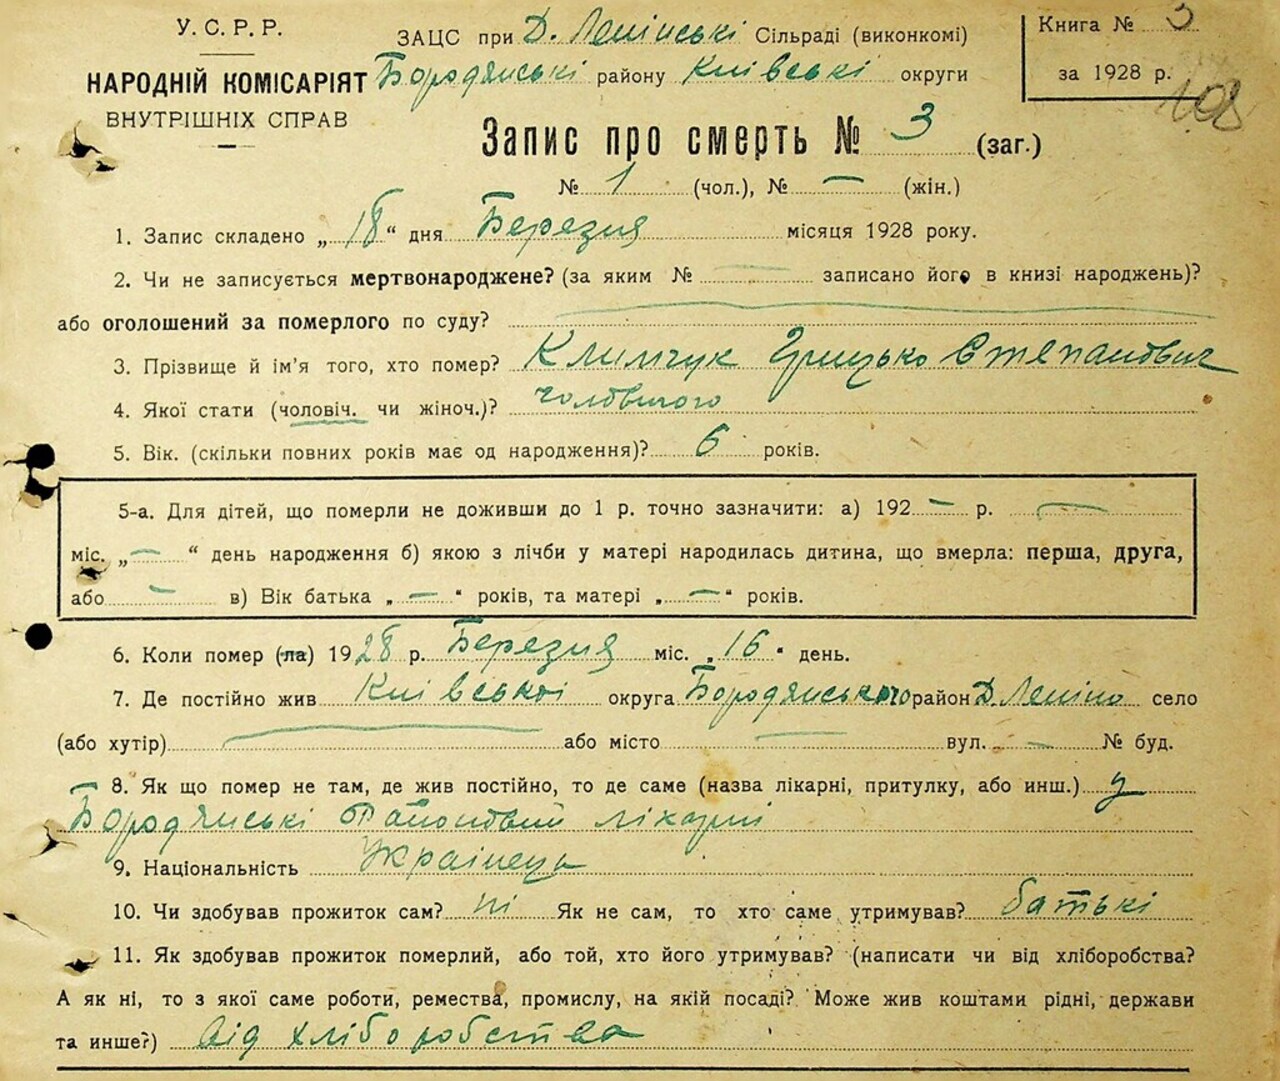 У. С. Р. Р.
НАРОДНІЙ КОМІСАРІЯТ
ВНУТРІШНІХ СПРАВ
ЗАЦС при Д. Ленінські Сільраді (виконкомі)
Бородянські району Київські округи
Книга № 3
за 1928 р.
108
Запис про смерть № 3 (заг.)
№ 1 (чол.), № — (жін.)
1. Запис складено „18“ дня Березня місяця 1928 року.
2. Чи не записується мертвонароджене? (за яким № — записано його в книзі народжень)?
або оголошений за померлого по суду?
3. Прізвище й ім'я того, хто помер? Климчук Грицько Степанович
4. Якої стати (чоловіч. чи жіноч.)? чоловічого
5. Вік. (скільки повних років має од народження)? 6 років.
5-а. Для дітей, що померли не доживши до 1 р. точно зазначити: а) 192 — р. —
міс. „—“ день народження б) якою з лічби у матері народилась дитина, що вмерла: перша, друга,
або — в) Вік батька „—“ років, та матері „—“ років.
6. Коли помер (ла) 1928 р. Березня міс. „16“ день.
7. Де постійно жив Київської округа Бородянського район Д. Леніно село
(або хутір) — або місто — вул. — № буд.
8. Як що помер не там, де жив постійно, то де саме (назва лікарні, притулку, або инш.) у
Бородянські Районовий лікарні
9. Національність Українець
10. Чи здобував прожиток сам? ні Як не сам, то хто саме утримував? батькі
11. Як здобував прожиток померлий, або той, хто його утримував? (написати чи від хліборобства?
А як ні, то з якої саме роботи, ремества, промислу, на якій посаді? Може жив коштами рідні, держави
та инше?) Від хліборобства